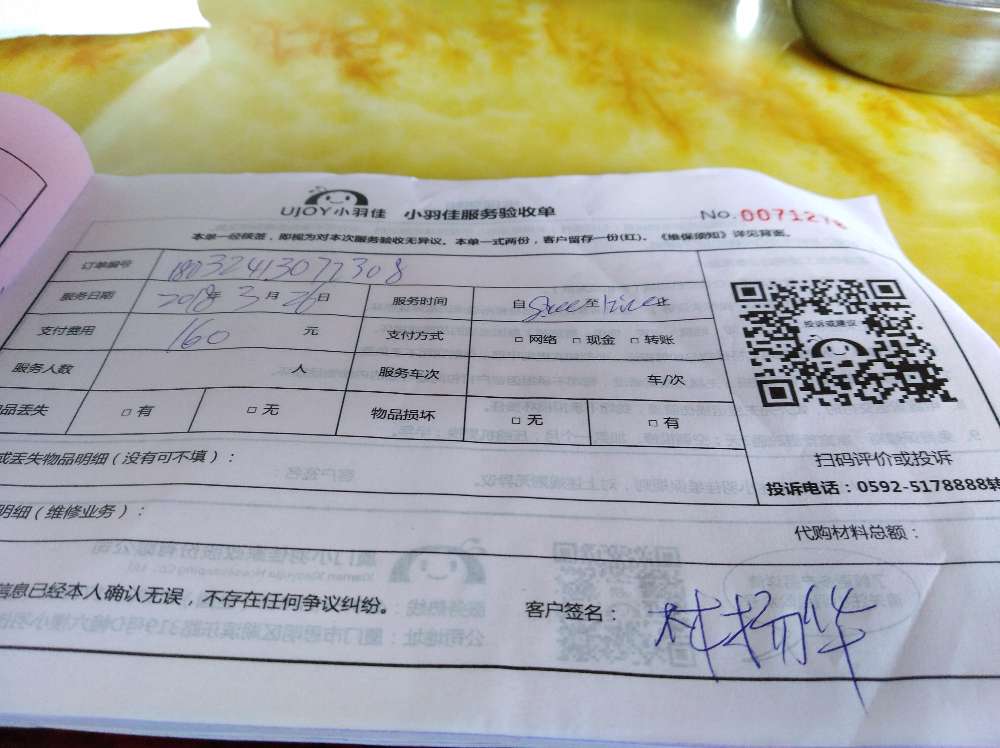 UJOY小羽佳 小羽佳服务验收单
No.
本单一经核签，即视为对本次服务验收无异议。本单一式两份，客户留存一份(红)。《维保须知》详见背面。
订单编号 18032413077308
服务日期 2018年 3月 26日 服务时间 自 至 止
支付费用 160 元 支付方式 □网络 □现金 □转账
服务人数 人 服务车次 车/次
品丢失 □有 □无 物品损坏 □无 □有
投诉或建议
扫码评价或投诉
投诉电话：0592-5178888转
或丢失物品明细（没有可不填）：
明细（维修业务）：
代购材料总额：
信息已经本人确认无误，不存在任何争议纠纷。
客户签名：